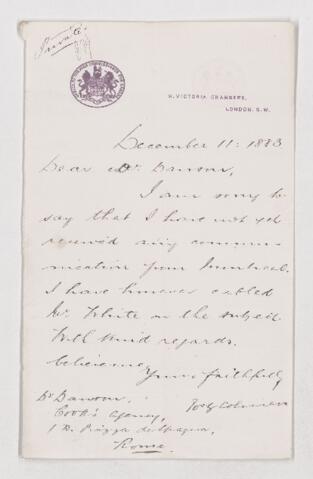 Private
VICTORIA CHAMBERS,
LONDON. S.W.
December 11. 1883
Dear Dr. Dawson,
I am sorry to
say that I have not yet
received any commu-
nication from Montreal.
I have however cabled
Mr. White on the subject
With kind regards.
believe me
Yours faithfully
Dr Dawson.
Cook's Agency,
1 B. Piazza di Spagna,
Rome.